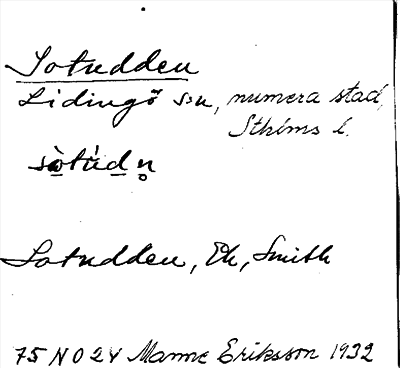 Sotudden
Lidingö sn, numera stad,
Sthlms l.
sò̱túd̲n̥
Sotudden, Ek, Smith
75 NO 2Y Manne Eriksson 1932